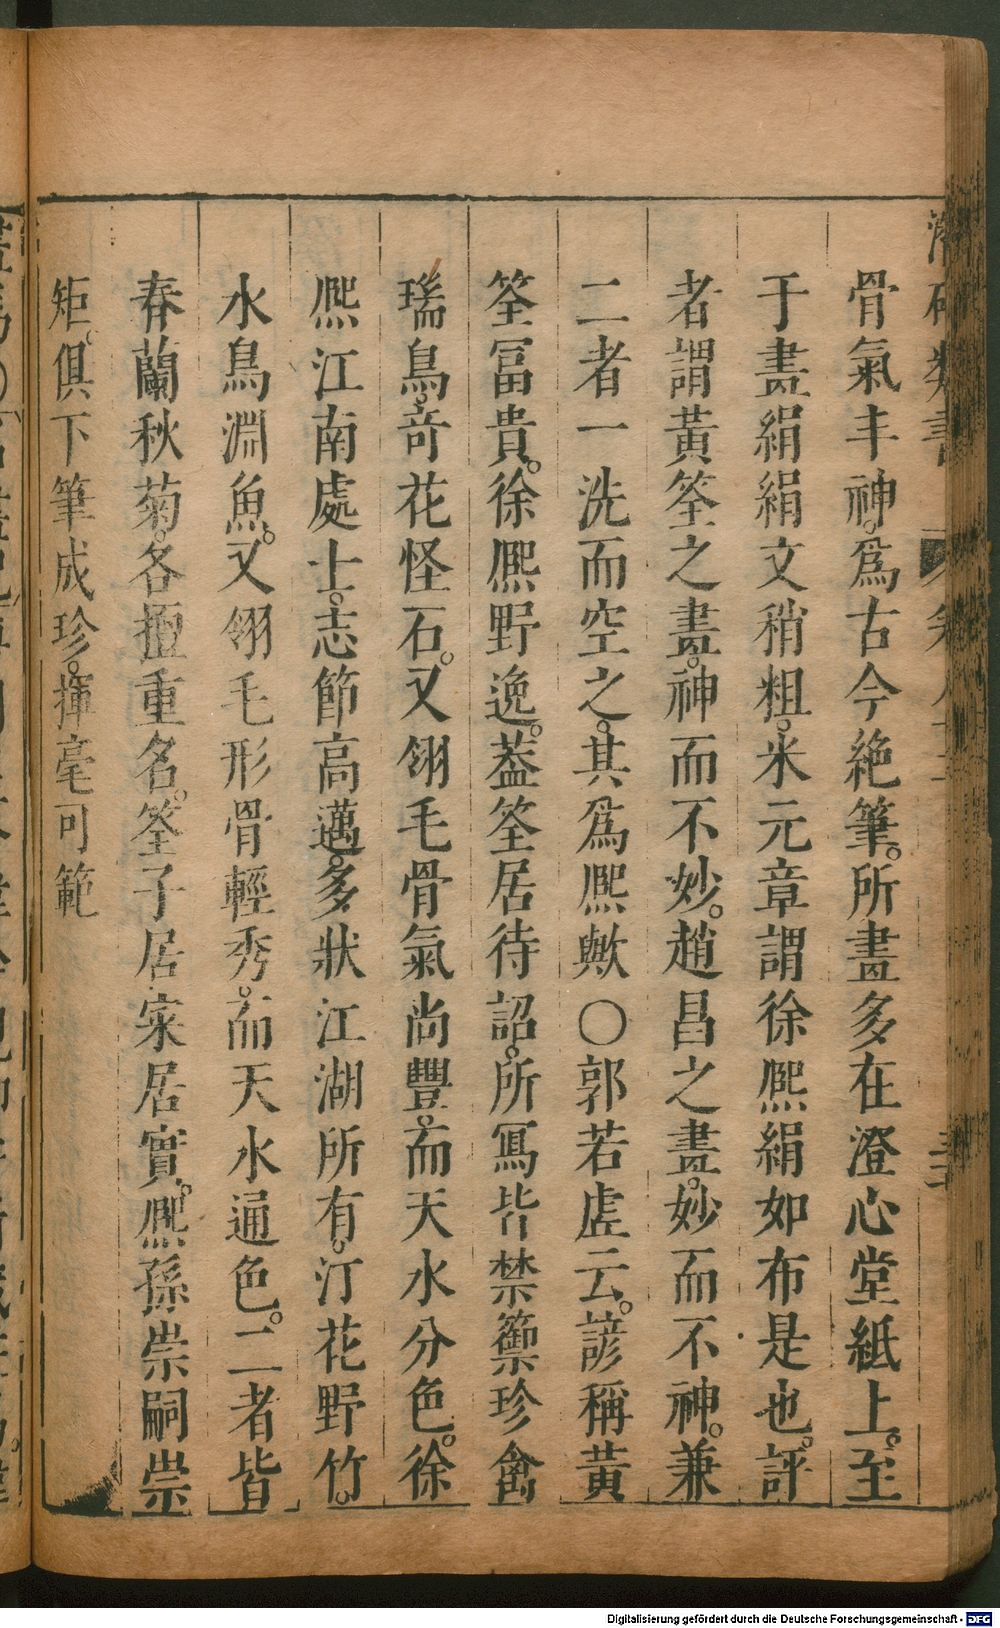 骨氣丰神。爲古今絶筆。所畫多在澄心堂紙上。至
于畫絹絹文稍粗。米元章謂徐熈絹如布是也。評
者謂黃筌之畫。神而不妙。趙昌之畫。妙而不神。兼
二者一洗而空之。其爲熈歟○郭若虛云。諺稱黃
筌冨貴。徐熈野逸。葢筌居待詔。所冩皆禁籞珍禽
瑞鳥。竒花怪石。又翎毛骨氣尚豐。而天水分色。徐
熈江南處士。志節高邁。多狀江湖所有。汀花野竹。
水鳥淵魚。又翎毛形骨輕秀。而天水通色。二者皆
春蘭秋菊。各擅重名。筌子居寀居實。熈孫崇嗣崇
矩。俱下筆成珍。揮毫可範
Digitalisierung gefördert durch die Deutsche Forschungsgemeinschaft - DFG